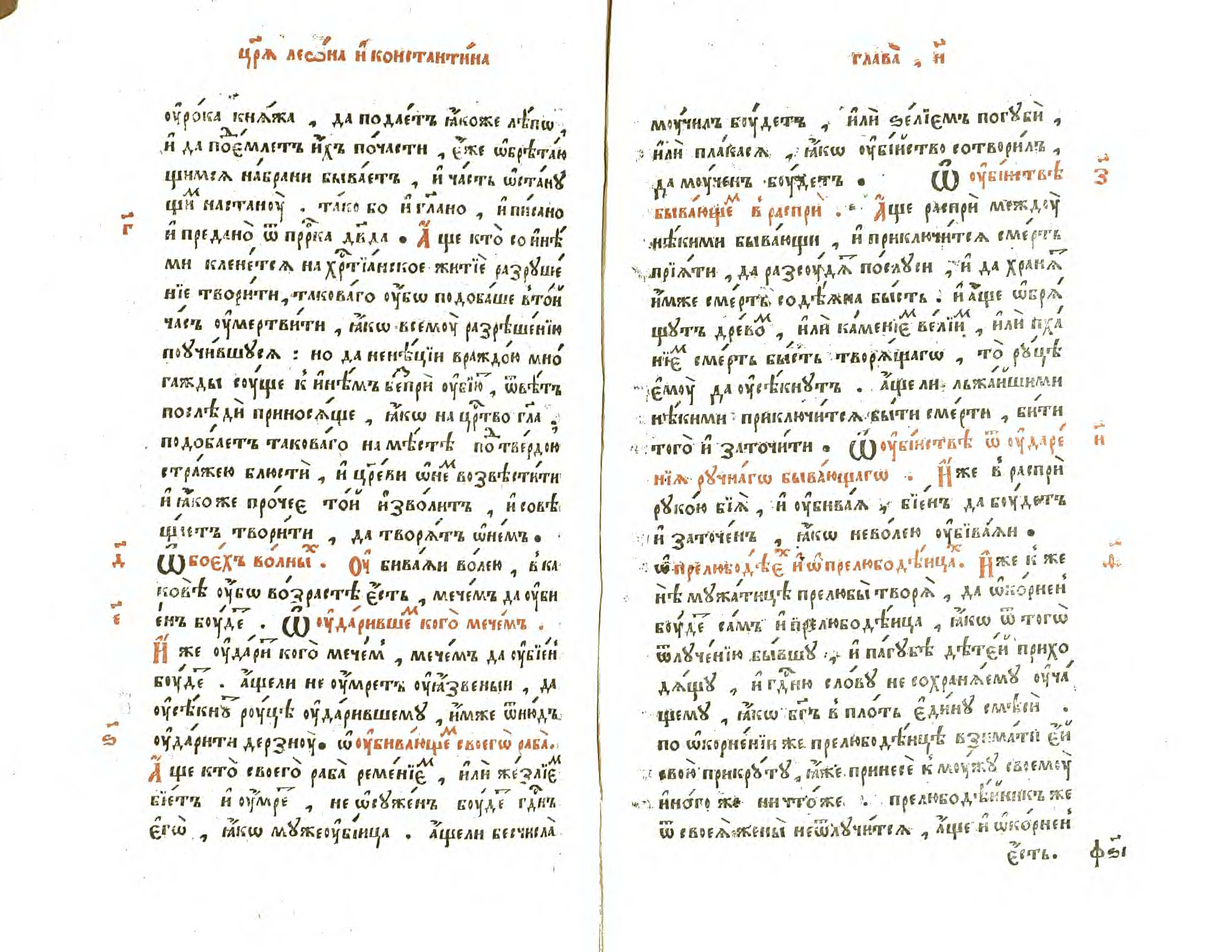 цр҃ѧ леѡ́на и҆ константи́на
оу҆ро́ка кнѧ́жа , да подае́тъ ꙗ҆́коже лѣ́пѡ ,
и҆ да пое́млетъ и҆́хъ поча́сти , є҆́же ѡ҆брѣта́ю
щимсѧ на́брани быва́етъ , и҆ ча́сть ѡ҆ста́нꙋ
щиⷨ настаноу̀ . та́ко бо и҆ гл҃ано , и҆ пи́сано
г҃
и҆ пре́дано ѿ прⷪ҇рка дв҃да . А҆́ще кто̀ со и҆нѣ́
ми клене́тсѧ на хрⷭ҇тїа́нское житїѐ разрꙋше́
нїе твори́ти , такова́го оу҆́бѡ подоба́ше в то́й
ча́съ оу҆мертви́ти , ꙗ҆́кѡ всемоу̀ разрѣше́нїю
поучи́вшꙋсѧ : но да не нѣ́цїи враждо́ю мно́
гажды соу́ще к и҆нѣ́мъ беⷥпрѝ оу҆бїю́ , ѿвѣ́тъ
послѣдѝ приносѧ́ще , ꙗ҆́кѡ на црⷭ҇тво гл҃а ,
подоба́етъ такова́го на мѣ́стѣ поⷣ тве́рдою
стра́жею блюстѝ , и҆ цр҃еви ѡ҆ не́ⷨ возвѣсти́ти
и҆ ꙗ҆́коже про́чеє то́й и҆зво́литъ , и҆ совѣ
ща́етъ твори́ти , да творѧ́тъ ѡ҆ не́мъ .
д҃
Ѡ҆ бое́хъ во́лныⷯ . Оу҆бива́ѧи во́лею , в ка
ко́вѣ оу҆́бѡ во́зрастѣ є҆́сть , мече́мъ да оу҆бы
є҃
е́нъ боу́деⷮ . Ѡ҆ оу҆да́ривше́ⷨ кого̀ мече́мъ .
И҆́же оу҆да́ритъ кого̀ мече́мъ , мече́мъ да оу҆бїе́нъ
боу́деⷮ . а҆́щели не оу҆́мретъ оу҆ꙗ҆́звеныи , да
оу҆сѣкнꙋ́ⷮ роу́цѣ оу҆да́рившемꙋ , и҆́мже ѿню́дъ
ѕ҃
оу҆да́рити дерзноу̀ . ѡ҆ оу҆бива́юще́ⷨ своего̀ раба̀ .
А҆́ще кто̀ своего̀ раба̀ реме́нїеⷨ , и҆лѝ же́злїеⷨ
бїе́тъ и҆ оу҆́мреⷮ , не ѡ҆сꙋжде́нъ боу́деⷮ гдⷭ҇нъ
є҆гѡ̀ , ꙗ҆́кѡ мꙋжеоу҆бі́ица . а҆́щели бесчисла̀
глава̀ , и҃
моу́чилъ боу́детъ , и҆лѝ ѕе́лїемъ погꙋбѝ ,
и҆лѝ плака́сѧ , ꙗ҆́кѡ оу҆бі́йство сотвори́лъ ,
з҃
да моу́ченъ боу́детъ . Ѡ҆ оу҆бі́йствѣ
быва́ющеⷨ в распрѝ . А҆́ще распрѝ междоу̀
нѣ́кими быва́ющи , и҆ приключи́тсѧ сме́рть
прїѧ́ти , да разсоу́дѧⷮ послꙋси , и҆ да хранѧ́ⷮ
и҆́мже сме́рть содѣ́ѧна бы́сть . и҆ а҆́ще ѡ҆брѧ́
щꙋтъ дре́воⷨ , и҆лѝ ка́менїеⷨ ве́лїиⷨ , и҆лѝ пха́
нїеⷨ сме́рть бы́сть творѧ́щагѡ , то̀ рꙋ́цѣ
є҆моу̀ да оу҆сѣкнꙋтъ . а҆́щели льжа́йшими
нѣ́кими приключи́тсѧ бы́ти сме́рти , би́ти
и҃
того̀ и҆ заточи́ти . Ѡ҆ оу҆бі́йствѣ ѿ оу҆даре́
нїѧ рꙋ́чнагѡ быва́ющагѡ . И҆́же в распрѝ
рꙋко́ю бїѧ̀ , и҆ оу҆бива́ѧ , бїе́нъ да боу́детъ
и҆ заточе́нъ , ꙗ҆́кѡ нево́лею оу҆бива́ѧи .
ѳ҃
ѡ҆ прелюбодѣ́еⷯ и҆ ѡ҆ прелюбодѣ́ицаⷯ . И҆́же к же
нѣ̀ мꙋжа́тицѣ прелюбы̀ творѧ̀ , да ѡ҆ко́рненъ
боу́деⷮ са́мъ и҆ прелюбодѣ́ица , ꙗ҆́кѡ ѿ тогѡ̀
ѿлꙋче́нїю бы́вшꙋ , и҆ па́гꙋбѣ дѣте́й прихо
дѧ́щꙋ , и҆ гдⷭ҇ню сло́вꙋ не сохранѧ́емꙋ оу҆ча́
щемꙋ , ꙗ҆́кѡ бг҃ъ в пло́ть є҆ди́нꙋ смѣсѝ .
по ѡ҆корне́нїи же прелюбодѣ́ицѣ взима́ти є҆́й
своѝ прикрꙋ́тꙋ , ꙗ҆́же принесѐ к моу́жꙋ своемоу̀
и҆но́го же ничто́же . прелюбодѣ́йникъ же
ѿ своеѧ̀ жены̀ не ѿлꙋчи́тсѧ , а҆́ще и҆ ѡ҆ко́рненъ
є҆́сть . фѕ҃і